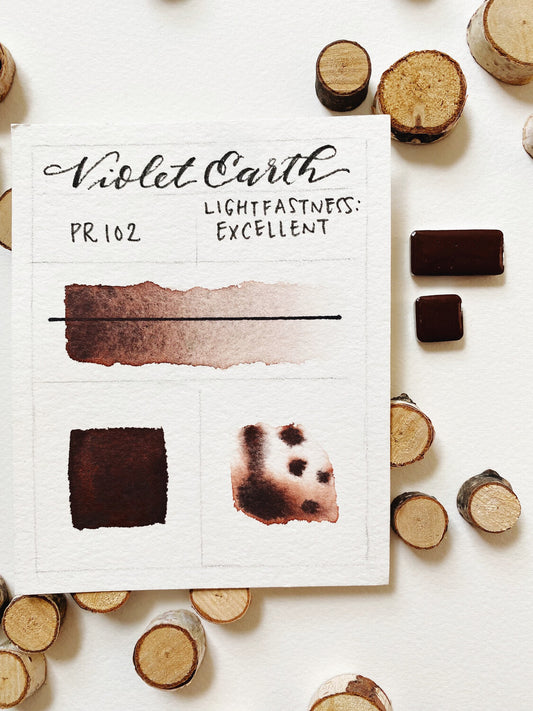 Violet Earth
PR 102
LIGHTFASTNESS:
EXCELLENT